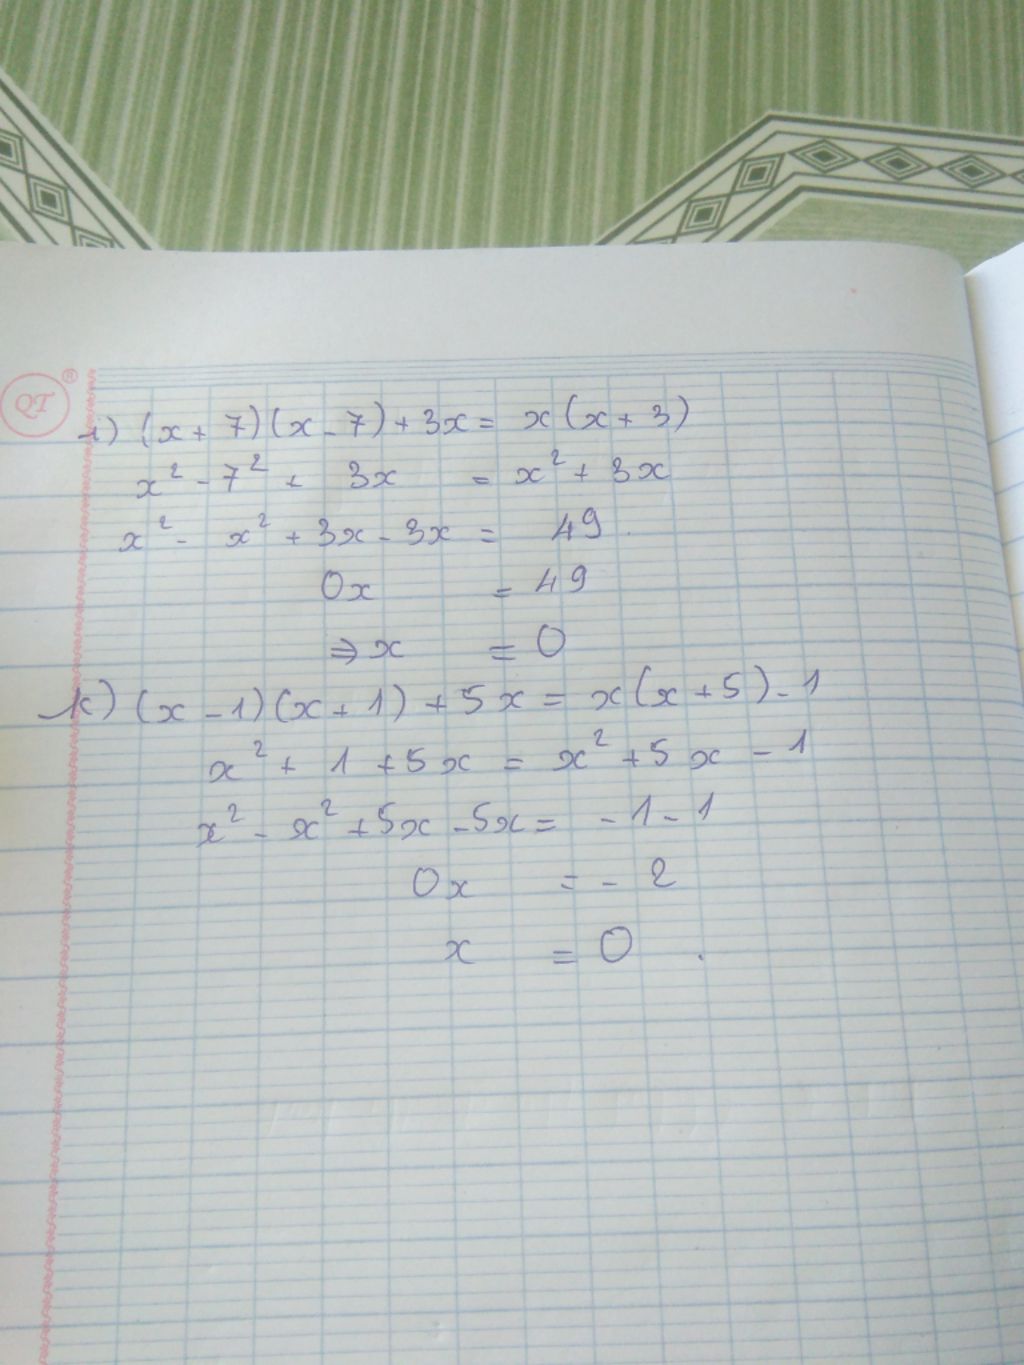 QT ®
i) (x + 7)(x - 7) + 3x = x(x + 3)
x² - 7² + 3x = x² + 3x
x² - x² + 3x - 3x = 49
0x = 49
⇒ x = 0
k) (x - 1)(x + 1) + 5x = x(x + 5) - 1
x² + 1 + 5x = x² + 5x - 1
x² - x² + 5x - 5x = - 1 - 1
0x = - 2
x = 0 .